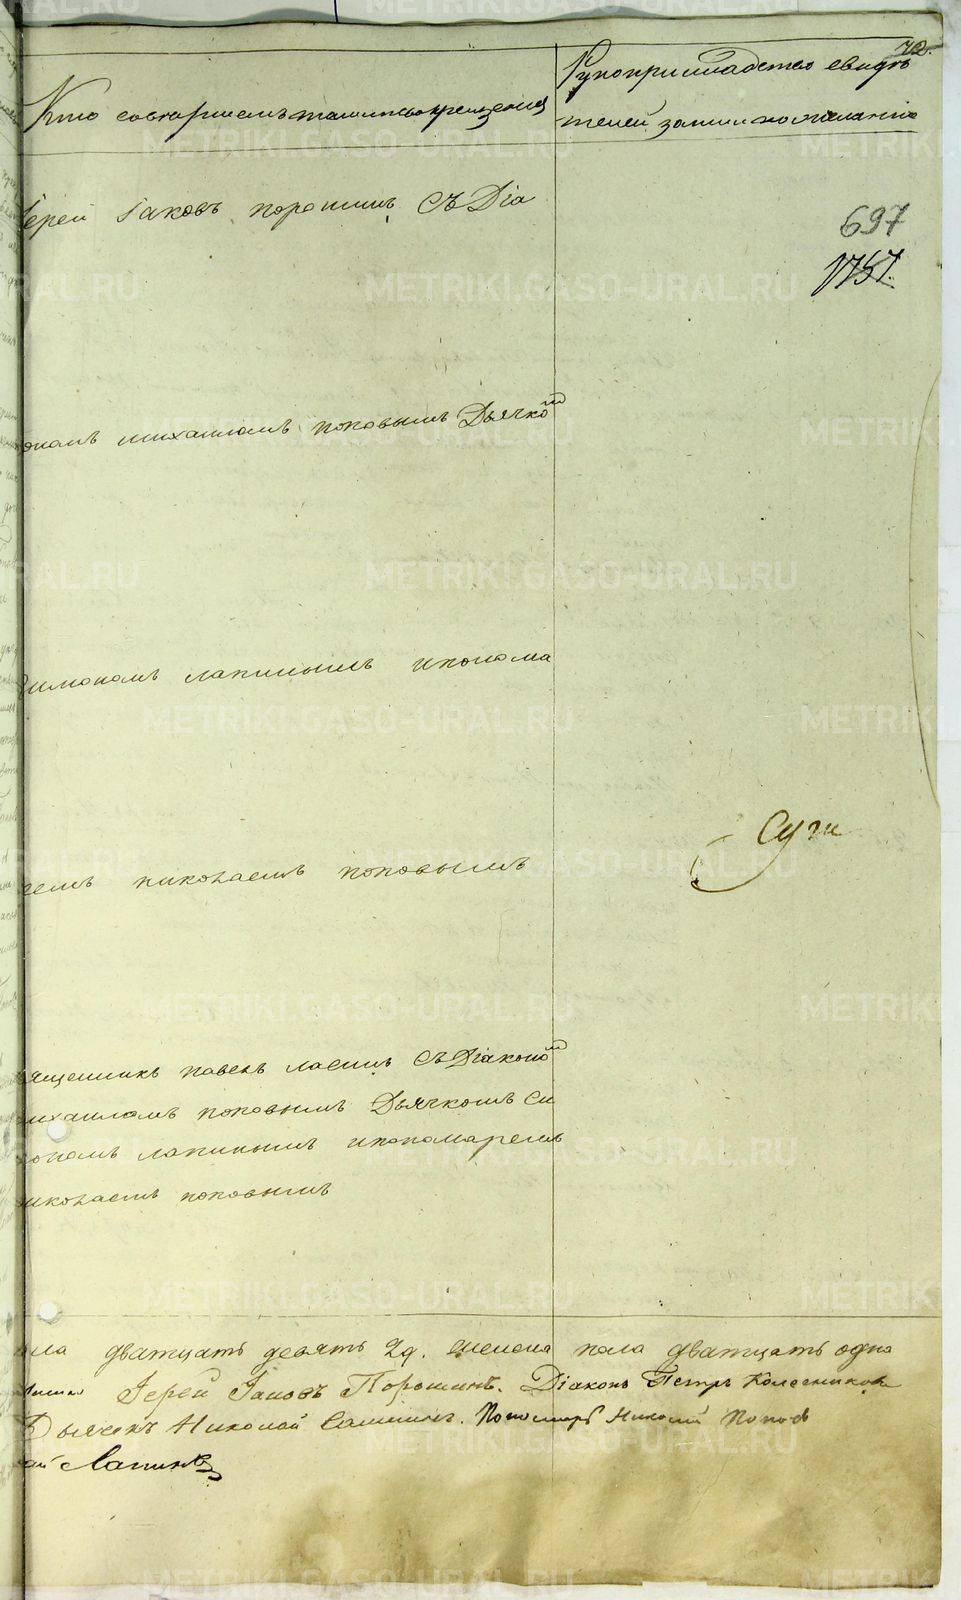 72.
Кто совершилъ таинство крещенія
Рукоприкладство свидѣ
телей записи по желанію
Іерей Іаковъ порошинъ Съ Діа
697
1757.
ономъ михаиломъ поповымъ Дьячком
имономъ лапинымъ ипонома
Суш
емъ николаемъ поповымъ
ященникъ павелъ ласинъ Съ Діаконом
ихаиломъ поповымъ Дьячкомъ Си
ономъ лапинымъ ипономаремъ
иколаемъ поповымъ
ола дватцать девять 29. женска пола дватцать одна
Іерей Іаковъ Порошинъ. Діаконъ Петръ Колесников
Дьячекъ Николай Пономарь Николай Попов
ай Лапинъ